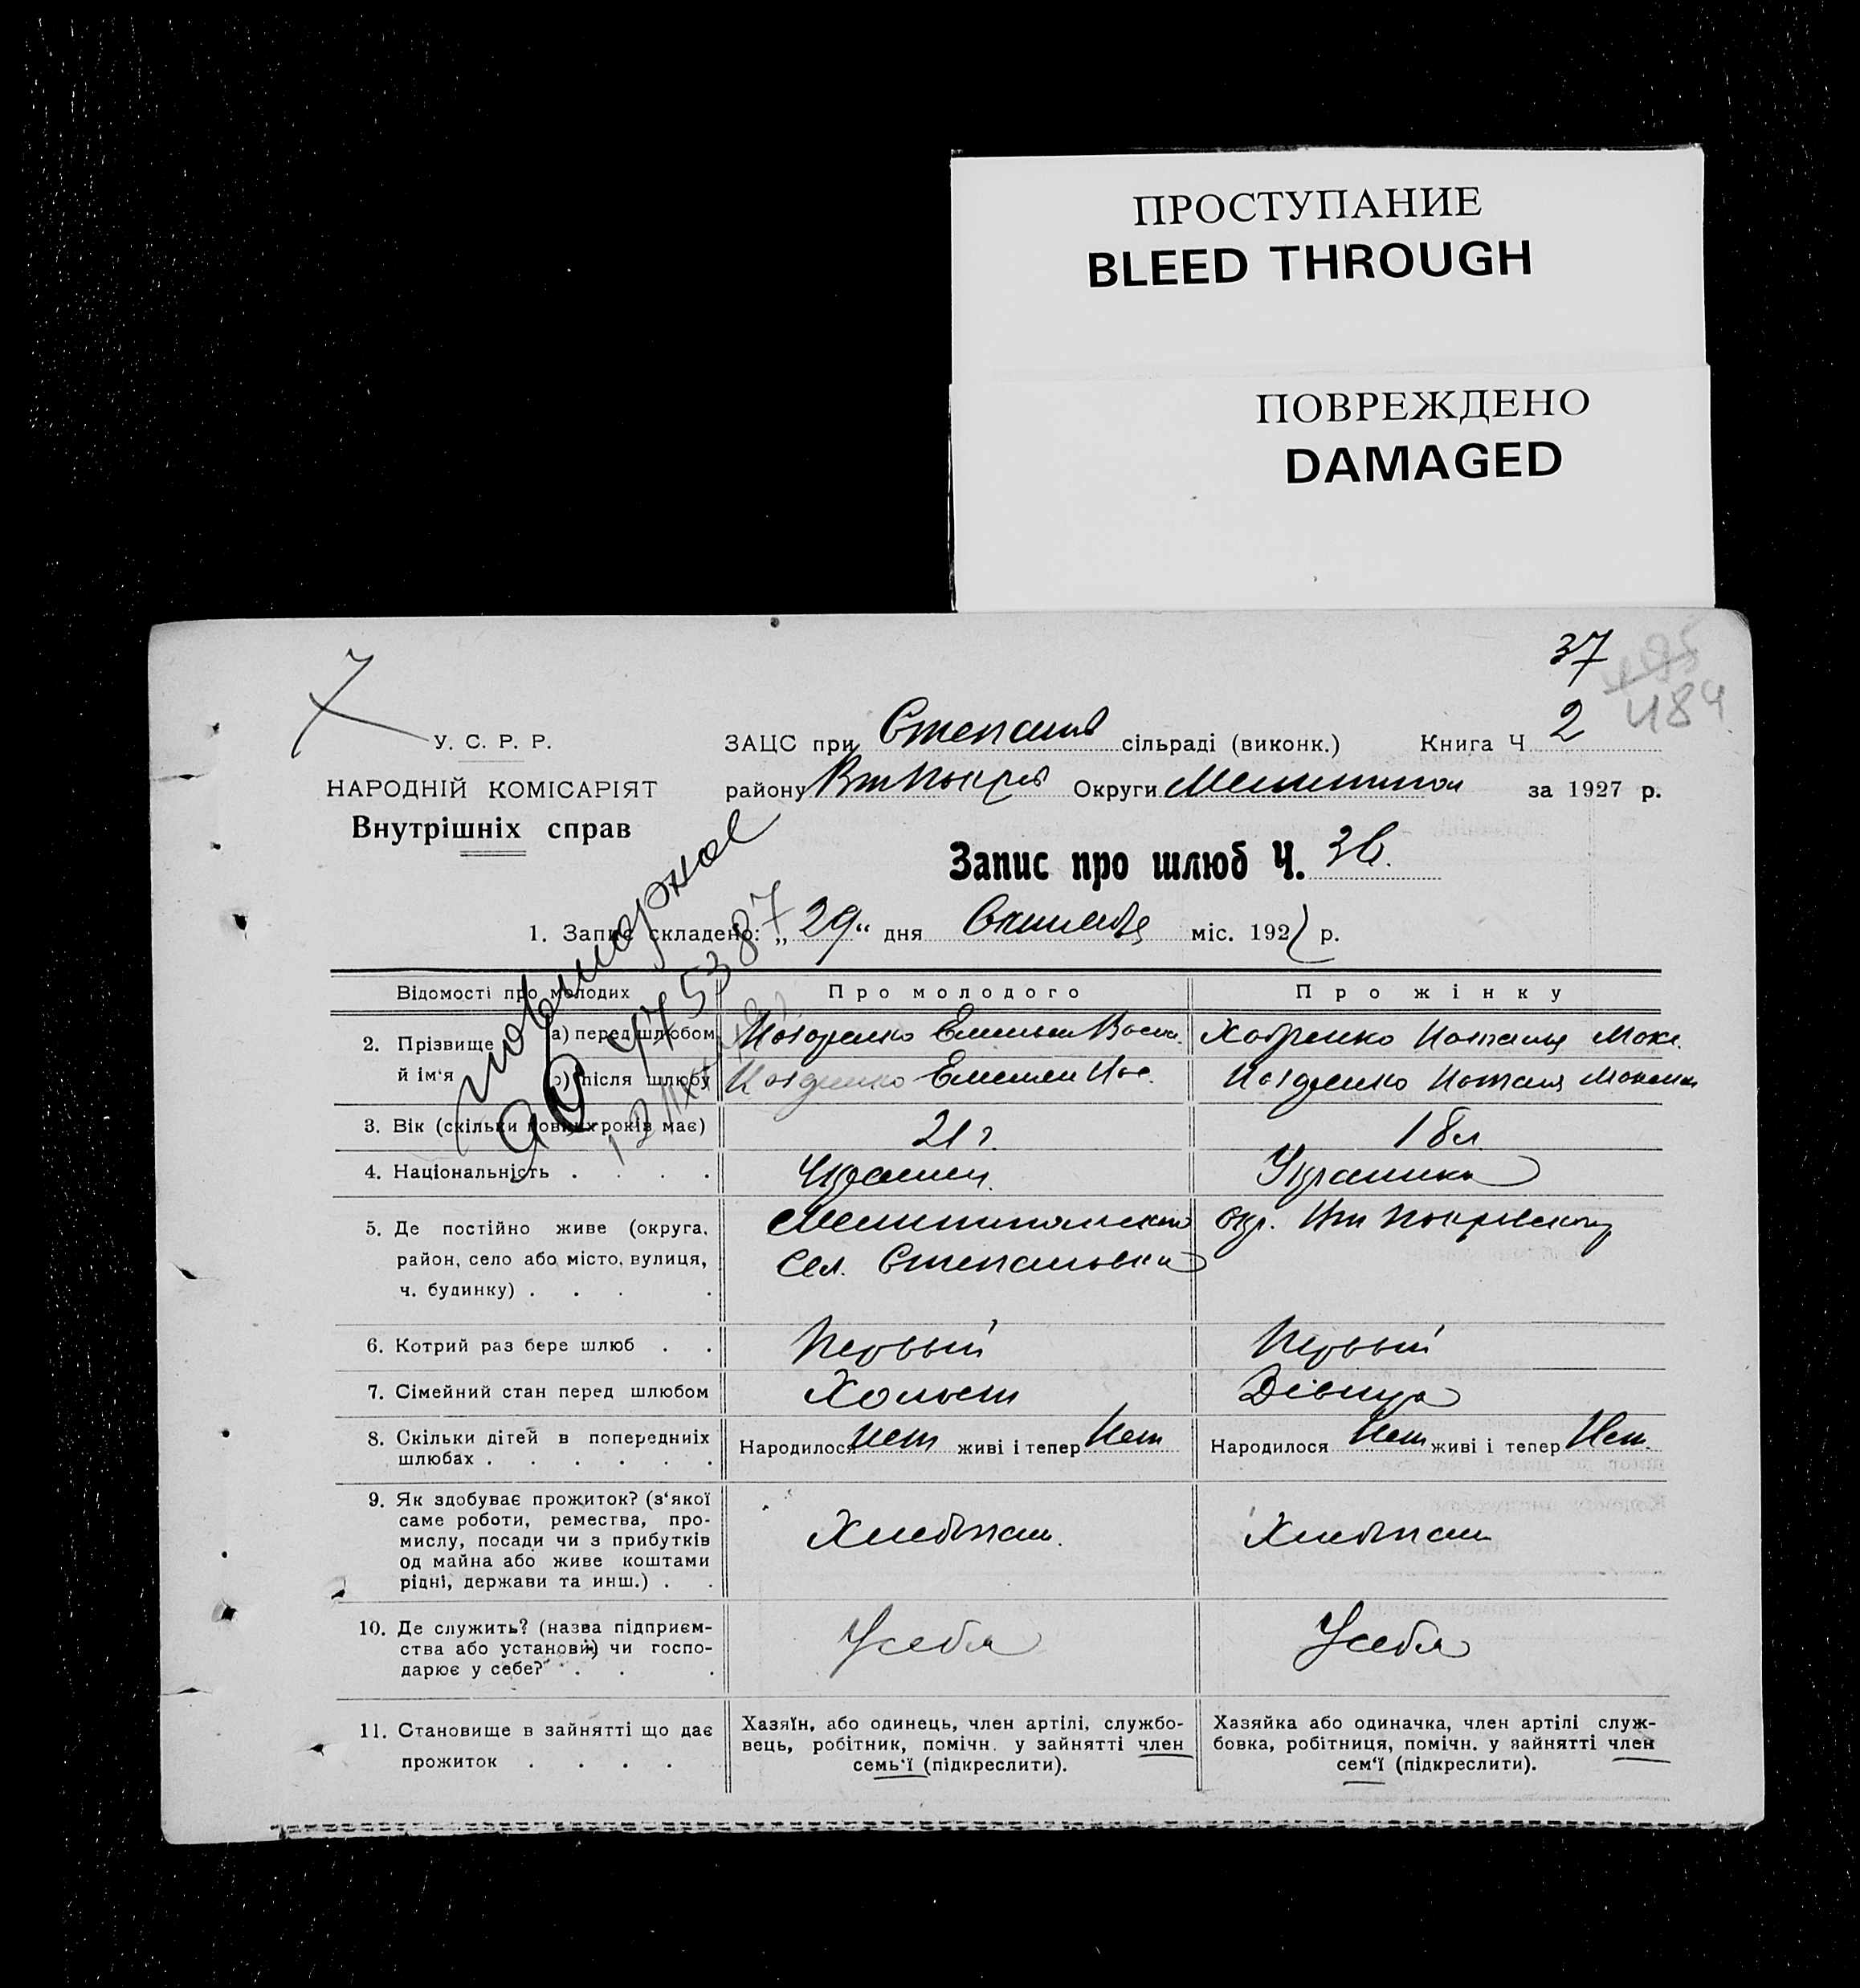 ПРОСТУПАНИЕ
BLEED THROUGH
ПОВРЕЖДЕНО
DAMAGED
37
484
У. С. Р. Р.
НАРОДНІЙ КОМІСАРІЯТ
Внутрішніх справ
ЗАЦС при Степанів сільраді (виконк.) Книга Ч 2
району Округи за 1927 р.
Запис про шлюб Ч. 36.
повторное
1. Запис складено: „29“ дня Октября міс. 1927 р.
Відомості про молодих Про молодого Про жінку
2. Прізвище й ім'я
а) перед шлюбом Емельян Наталья
б) після шлюбу Емельян Наталя
3. Вік (скільки повних років має) 21 г. 18 л
4. Національність . . . . Украинец. Украинка
5. Де постійно живе (округа, Мелитопольской окр.
район, село або місто, вулиця, сел. Степановка
ч. будинку) . . . .
6. Котрий раз бере шлюб . . Первый Первый
7. Сімейний стан перед шлюбом Холост Дівиця
8. Скільки дітей в попередниіх Народилося Нет живі і тепер Нет Народилося Нет живі і тепер Нет.
шлюбах . . . . . .
9. Як здобуває прожиток? (з'якої
саме роботи, ремества, про-
мислу, посади чи з прибутків Хлебпаш. Хлебпаш
од майна або живе коштами
рідні, держави та инш.) . .
10. Де служить? (назва підприєм-
ства або установи) чи госпо- У себя У себя
дарює у себе? . . .
11. Становище в зайнятті що дає
прожиток . . . .
Хазяїн, або одинець, член артілі, службо-
вець, робітник, помічн. у зайнятті член
семь'ї (підкреслити).
Хазяйка або одиначка, член артілі служ-
бовка, робітниця, помічн. у зайнятті член
сем'ї (підкреслити).